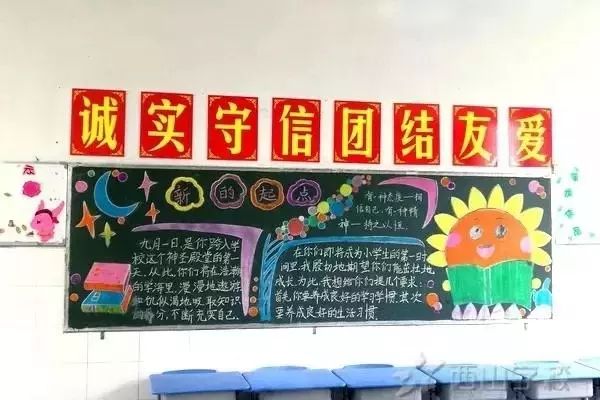 诚实守信团结友爱
新的起点
九月一日,是你跨入学
校这个神圣殿堂的第一
天,从此,你们将在浩瀚
的学海里,漫漫地遨游
饥似渴地吸取知识
分,不断充实自己。
在你们即将成为小学生的第一时
间里,我殷切地期望你们能茁壮地
成长。为此,我想给你们提几个要求:
首先,你要养成良好的学习习惯。其次
要养成良好的生活习惯。
有一种态度——相
信自己,有一种精
神——持之以恒。
西山学校